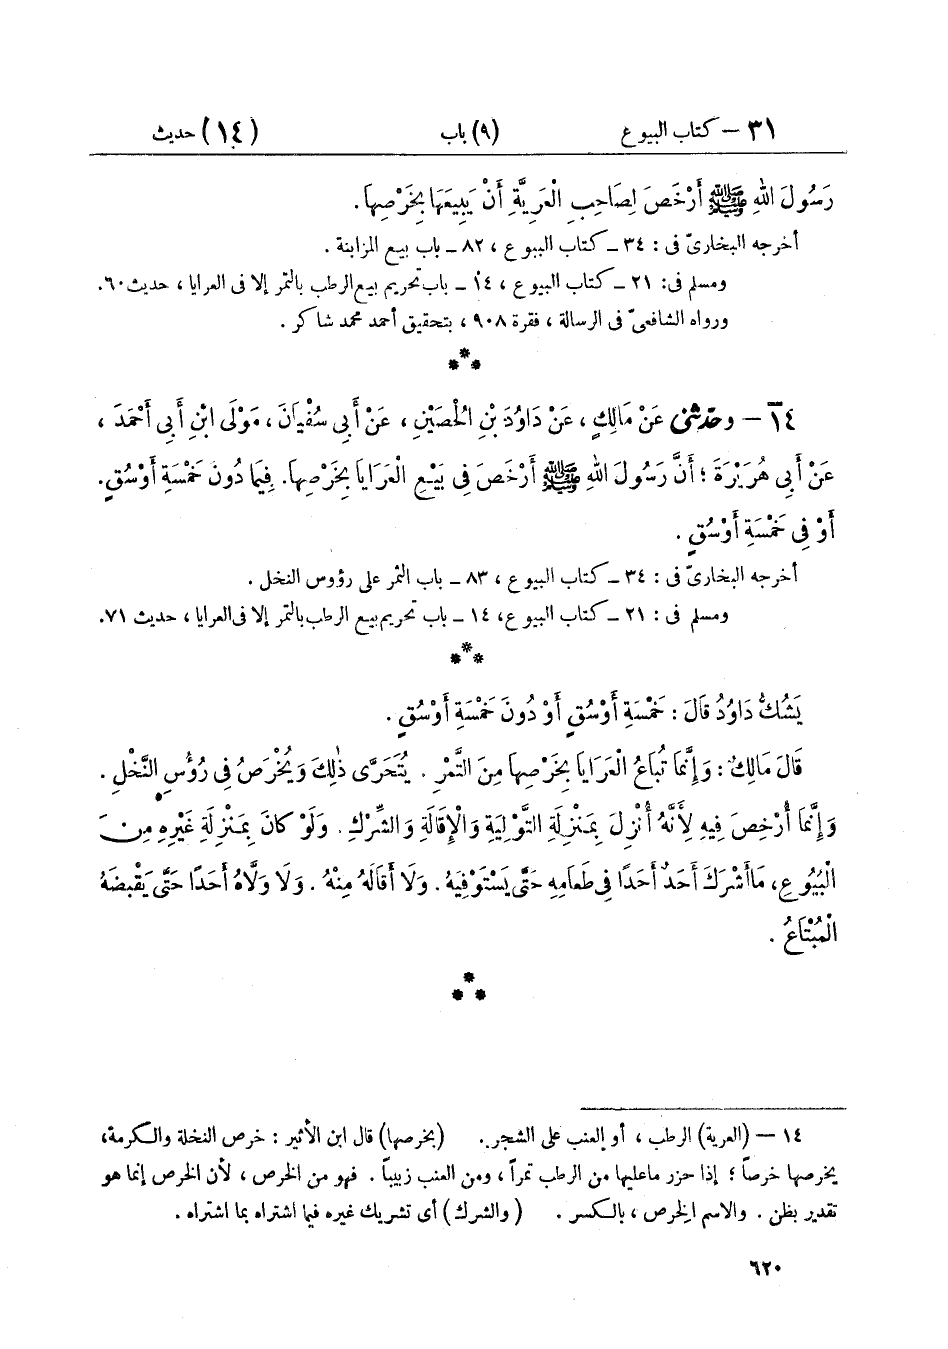 ٣١ – كتاب البيوع (٩) باب (١٤) حديث
رَسُولَ اللهِ ﷺ أَرْخَصَ لِصَاحِبِ الْعَرِيَّةِ أَنْ يَبِيعَهَا بِخَرْصِهَا.
أخرجه البخارىّ فى : ٣٤ ـ كتاب البيوع ، ٨٢ ـ باب بيع المزابنة .
ومسلم فى: ٢١ ـ كتاب البيوع ، ١٤ ـ باب تحريم بيع الرطب بالتمر إلا فى العرايا ، حديث ٦٠.
ورواه الشافعىّ فى الرسالة ، فقرة ٩٠٨ ، بتحقيق أحمد محمد شاكر .
***
١٤ – وحدّثنى عَنْ مَالِكٍ ، عَنْ دَاوُدَ بْنِ الْحُصَيْنِ ، عَنْ أَبِى سُفْيَانَ ، مَوْلَى ابْنِ أَبِى أَحْمَدَ ،
عَنْ أَبِى هُرَيْرَةَ ؛ أَنَّ رَسُولَ اللهِ ﷺ أَرْخَصَ فِى بَيْعِ الْعَرَايَا بِخَرْصِهَا. فِيمَا دُونَ خَمْسَةِ أَوْسُقٍ.
أَوْ فِى خَمْسَةِ أَوْسُقٍ .
أخرجه البخارىّ فى : ٣٤ ـ كتاب البيوع ، ٨٣ ـ باب الثمر على رؤوس النخل .
ومسلم فى : ٢١ ـ كتاب البيوع، ١٤ ـ باب تحريم بيع الرطب بالتمر إلا فى العرايا ، حديث ٧١.
***
يَشُكُّ دَاوُدُ قَالَ : خَمْسَةِ أَوْسُقٍ أَوْ دُونَ خَمْسَةِ أَوْسُقٍ .
قَالَ مَالِكٌ : وَإِنَّمَا تُبَاعُ الْعَرَايَا بِخَرْصِهَا مِنَ التَّمْرِ . يُتَحَرَّى ذٰلِكَ وَيُخْرَصُ فِى رُؤُسِ النَّخْلِ .
وَإِنَّمَا أُرْخِصَ فِيهِ لِأَنَّهُ أُنْزِلَ بِمَنْزِلَةِ التَّوْلِيَةِ وَالْإِقَالَةِ وَالشِّرْكِ . وَلَوْ كَانَ بِمَنْزِلَةِ غَيْرِهِ مِنَ
الْبُيُوعِ، مَا أَشْرَكَ أَحَدٌ أَحَدًا فِى طَعَامِهِ حَتَّى يَسْتَوْفِيَهُ . وَلَا أَقَالَهُ مِنْهُ . وَلَا وَلَّاهُ أَحَدًا حَتَّى يَقْبِضَهُ
الْمُبْتَاعُ .
***
١٤ – (العرية) الرطب ، أو العنب على الشجر. (بخرصها) قال ابن الأثير : خرص النخلة والكرمة،
يخرصها خرصاً ؛ إذا حزر ماعليها من الرطب تمراً ، ومن العنب زبيباً . فهو من الخرص ، لأن الخرص إنما هو
تقدير بظن . والاسم الخِرص ، بالكسر . ( والشرك ) أى تشريك غيره فيما اشتراه بما اشتراه .
٦٢٠